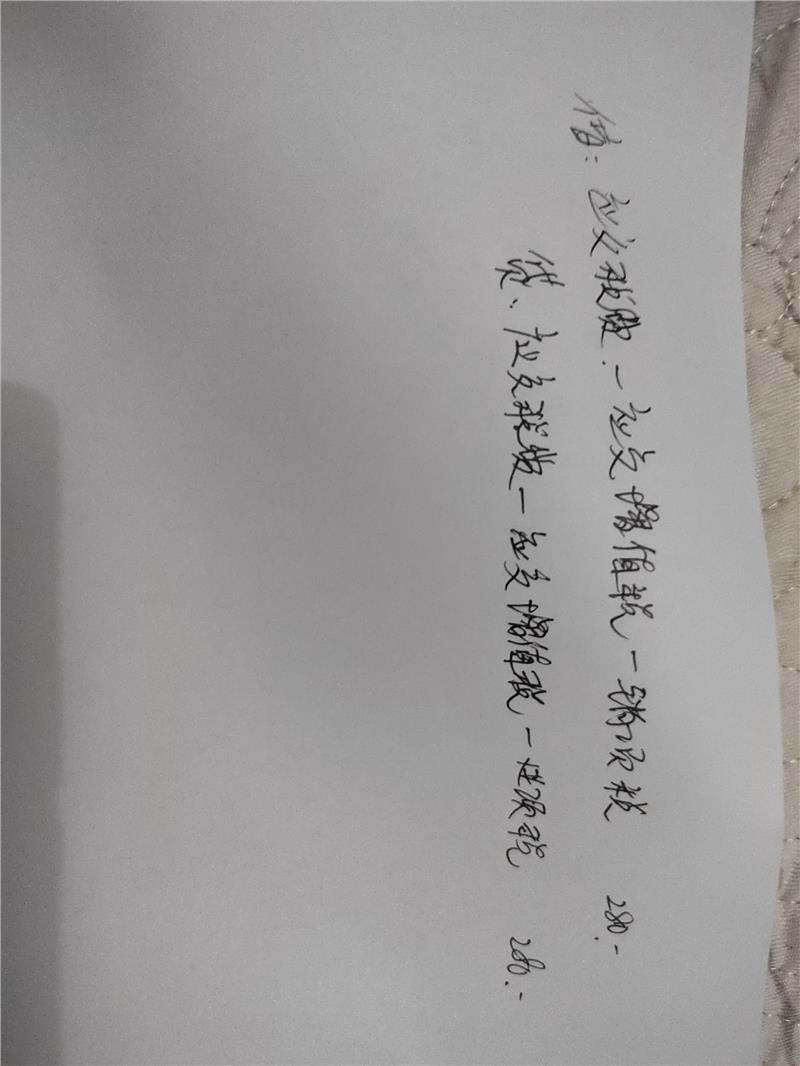 借：应交税费.一应交增值税一销项税 280.-
贷、应交税费一应交增值税一进项税 280.-